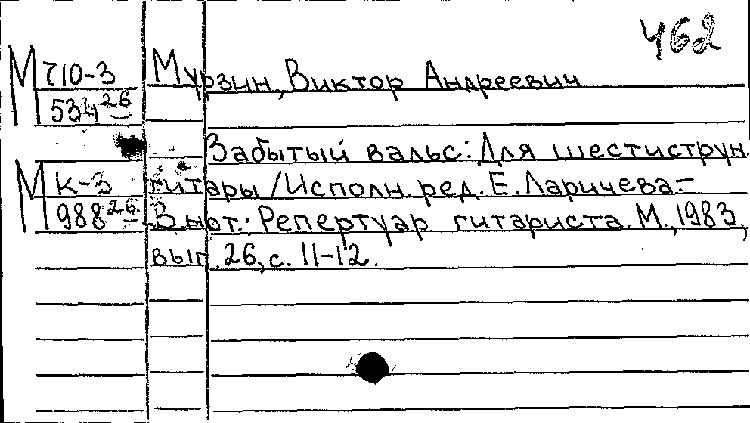 462
М 710-3 Мурзин, Виктор Андреевич
534 26
Забытый вальс: Для шестиструн.
М К-3 гитары / Исполн. ред. Е. Ларичева.–
988 26 В нот.: Репертуар гитариста. М., 1983,
вып. 26, с. 11-12.